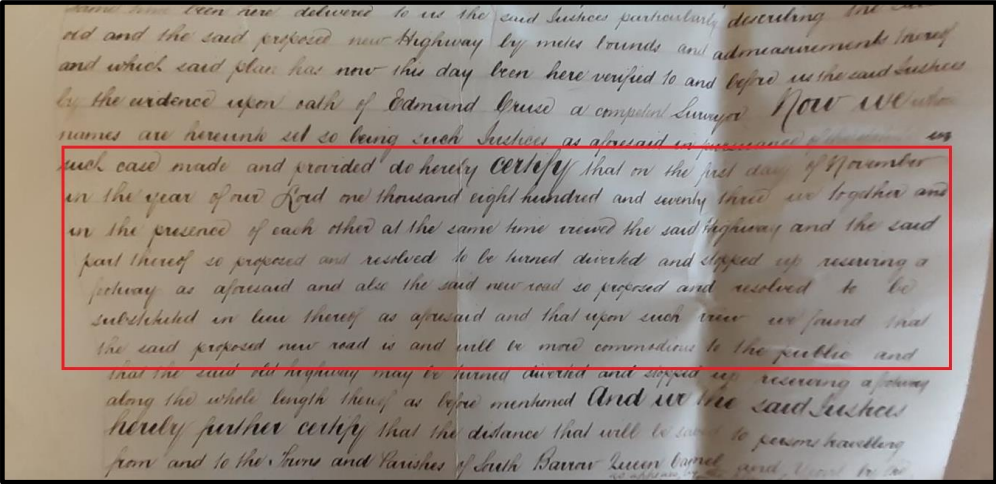 same have been here delivered to us the said Justices particularly describing the said
old and the said proposed new Highway by metes bounds and admeasurements thereof
and which said plan has now this day been here verified to and before us the said Justices
by the evidence upon oath of Edmund Cruse a competent Surveyor Now we whose
names are hereunto set so being such Justices as aforesaid in pursuance of in
such case made and provided do hereby certify that on the first day of November
in the year of our Lord one thousand eight hundred and seventy three we together and
in the presence of each other at the same time viewed the said Highway and the said
part thereof so proposed and resolved to be turned diverted and stopped up reserving a
footway as aforesaid and also the said new road so proposed and resolved to be
substituted in lieu thereof as aforesaid and that upon such view we found that
the said proposed new road is and will be more commodious to the public and
that the said old highway may be turned diverted and stopped up reserving a footway
along the whole length thereof as before mentioned And we the said Justices
hereby further certify that the distance that will be saved to persons travelling
from and to the Towns and Parishes of South Barrow Queen Camel and